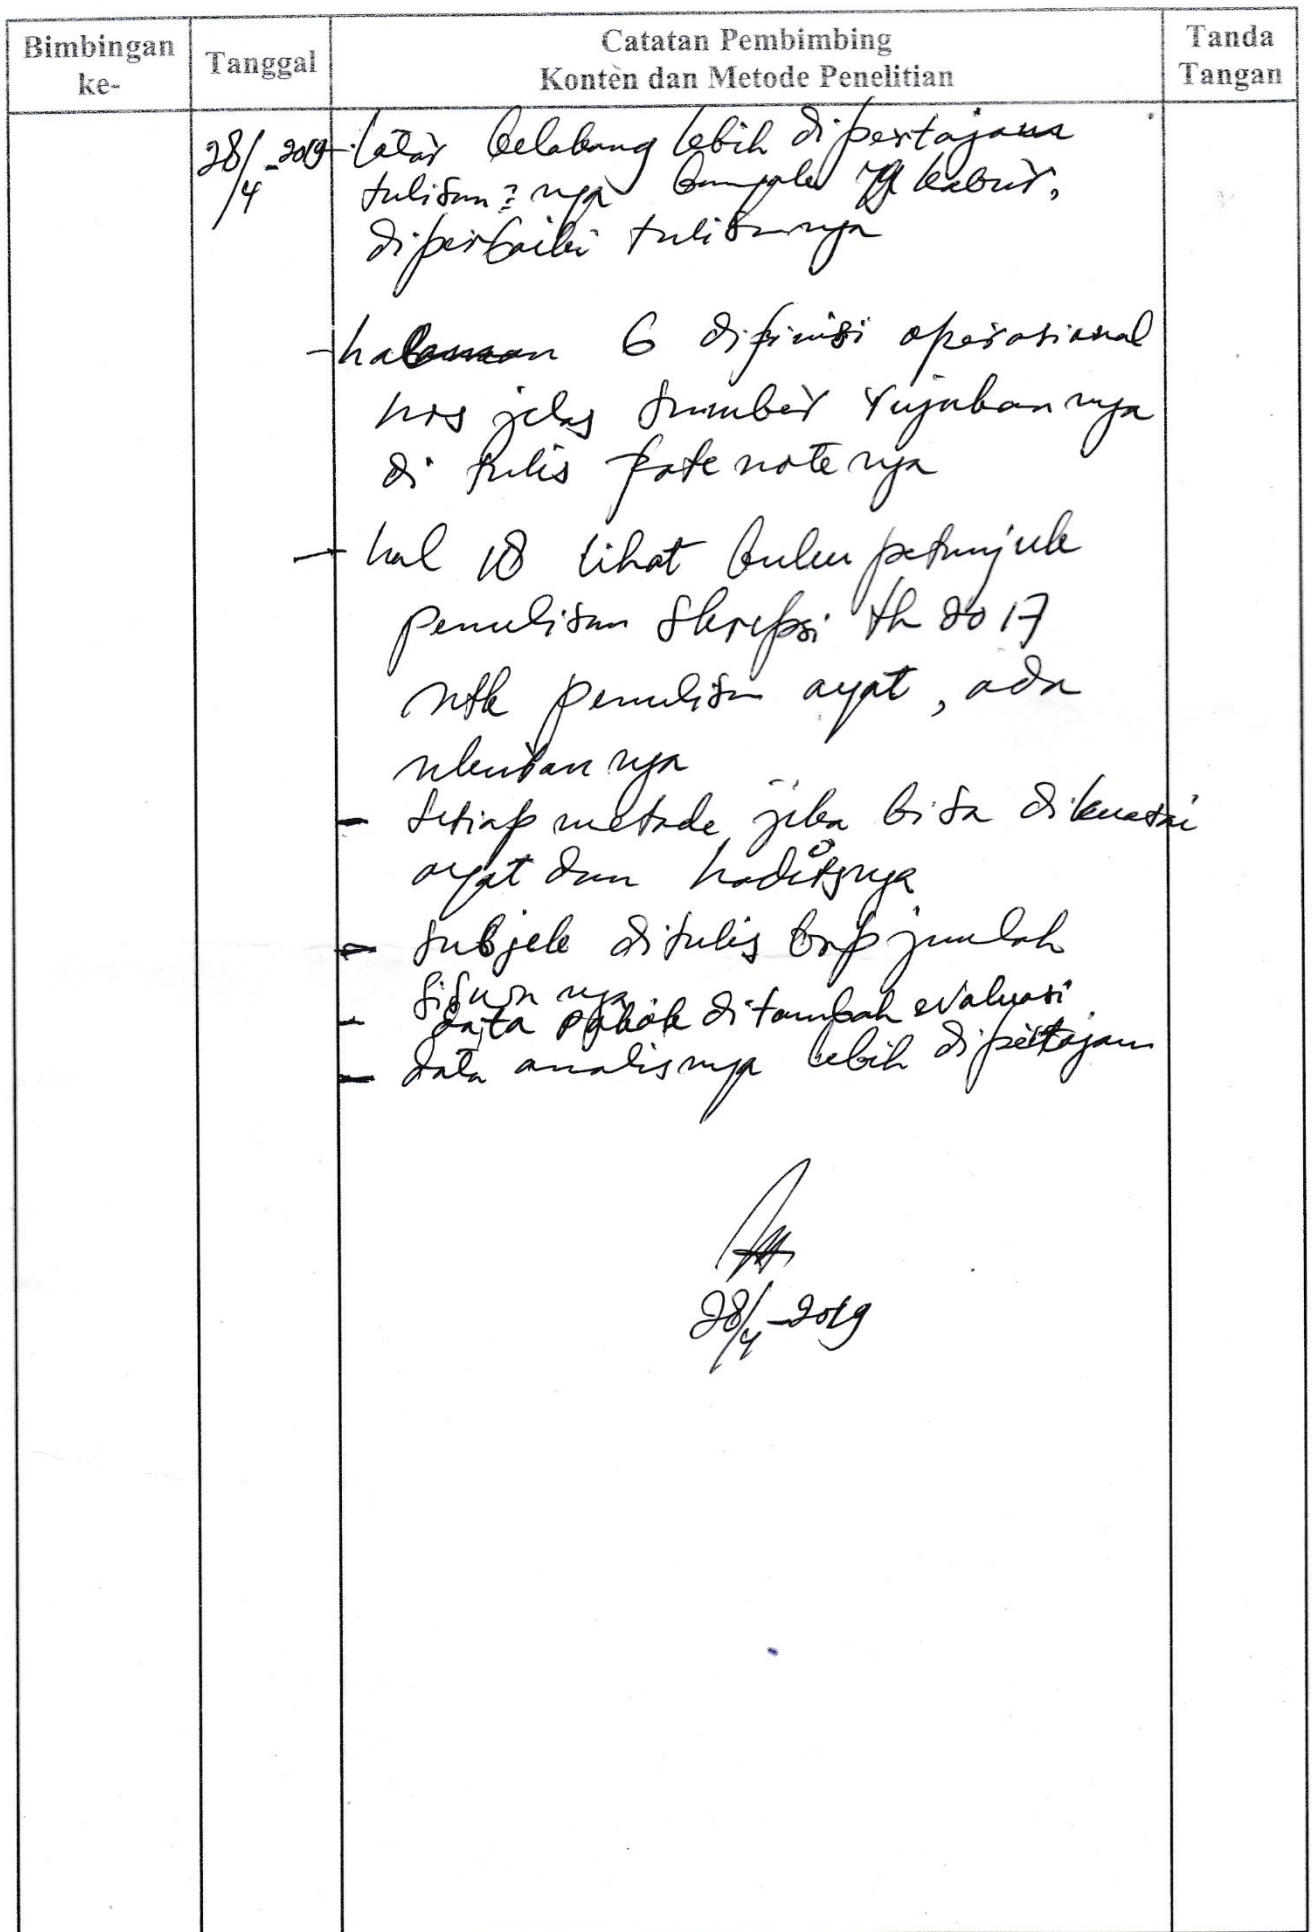 Bimbingan ke-
Tanggal
Catatan Pembimbing
Konten dan Metode Penelitian
Tanda Tangan
28/4-2019
- latar belakang lebih dipertajam
tulisan2nya banyak yg kabur,
diperbaiki tulisannya
- halaman 6 difinisi operasional
hrs jelas sumber rujukannya
di tulis fote notenya
- hal 18 lihat buku petunjuk
penulisan skripsi th 2017
utk penulisan ayat, ada
ukurannya
- setiap metode jika bisa dikuatai
ayat dan haditsnya
- subjek ditulis brp jumlah
siswanya
- data pokok ditambah evaluasi
- data analisnya lebih dipertajam
28/4-2019